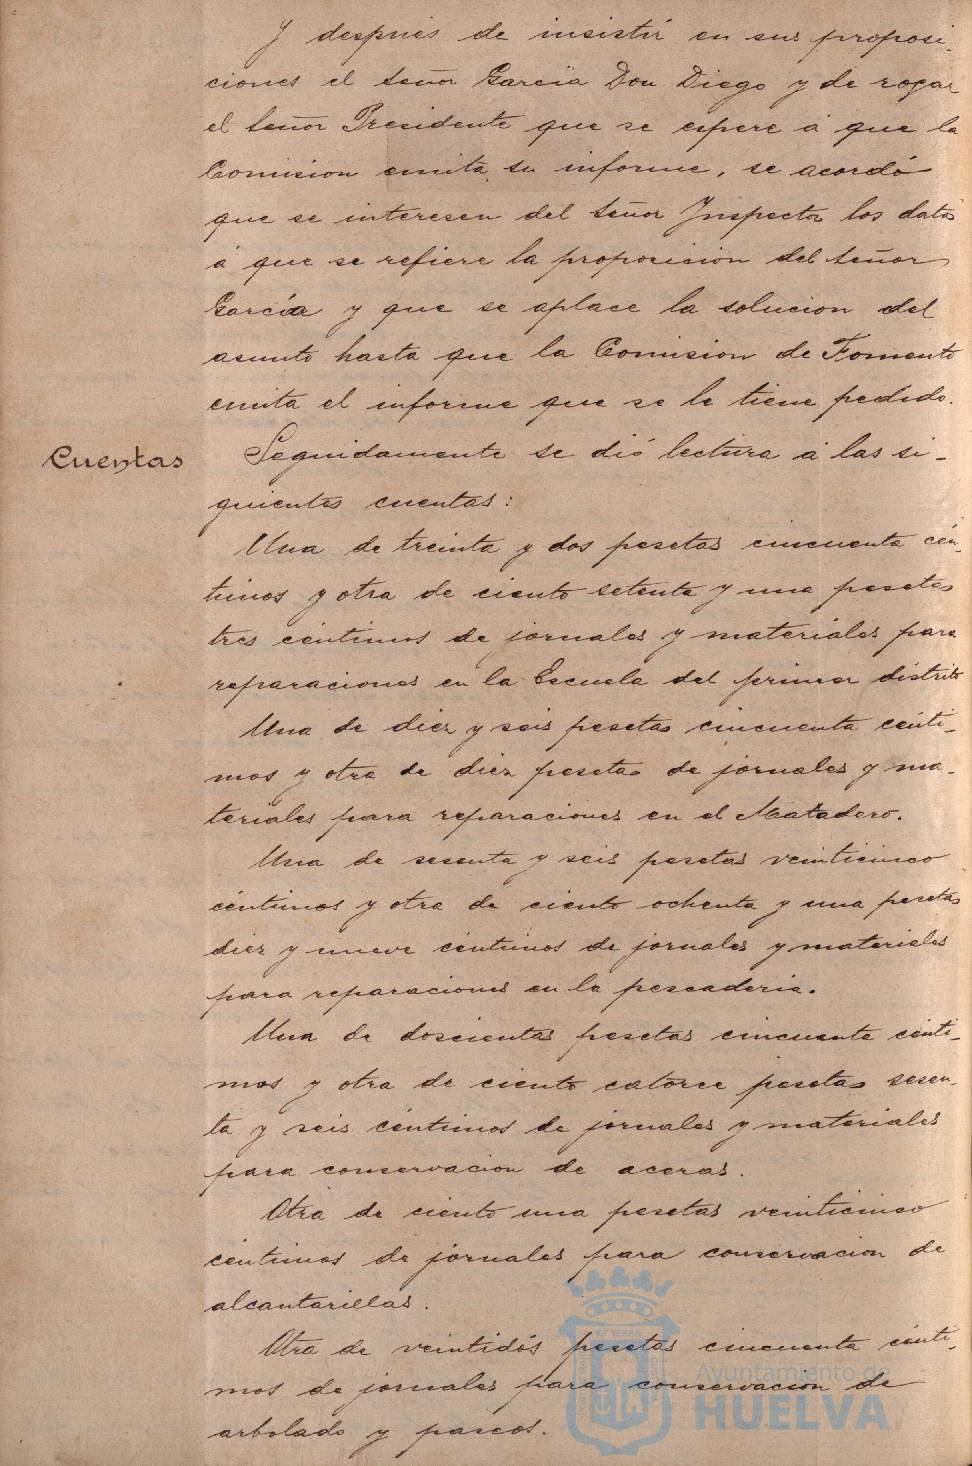 Y después de insistir en sus proposi-
ciones el señor García Don Diego y de rogar
el señor Presidente que se espere á que la
Comision emita su informe, se acordó
que se interesen del señor Inspector los datos
á que se refiere la proposicion del señor
García y que se aplace la solucion del
asunto hasta que la Comision de Fomento
emita el informe que se le tiene pedido.
Cuentas
Seguidamente se dió lectura á las si-
guientes cuentas:
Una de treinta y dos pesetas cincuenta cén-
timos y otra de ciento setenta y una pesetas
tres céntimos de jornales y materiales para
reparaciones en la Escuela del primer distrito
Una de diez y seis pesetas cincuenta cénti-
mos y otra de diez pesetas de jornales y ma-
teriales para reparaciones en el Matadero.
Una de sesenta y seis pesetas veinticinco
céntimos y otra de ciento ochenta y una pesetas
diez y nueve céntimos de jornales y materiales
para reparaciones en la pescaderia.
Una de doscientas pesetas cincuenta cénti-
mos y otra de ciento catorce pesetas sesen-
ta y seis céntimos de jornales y materiales
para conservacion de aceras.
Otra de ciento una pesetas veinticinco
céntimos de jornales para conservacion de
alcantarillas.
Otra de veintidós pesetas cincuenta cénti-
mos de jornales para conservacion de
arbolado y paseos.
Ayuntamiento de
HUELVA